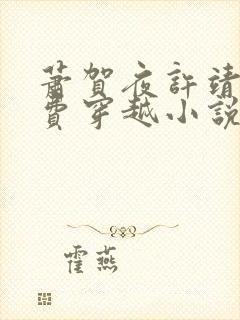 蕭賀夜許靖
費穿越小說
霍燕